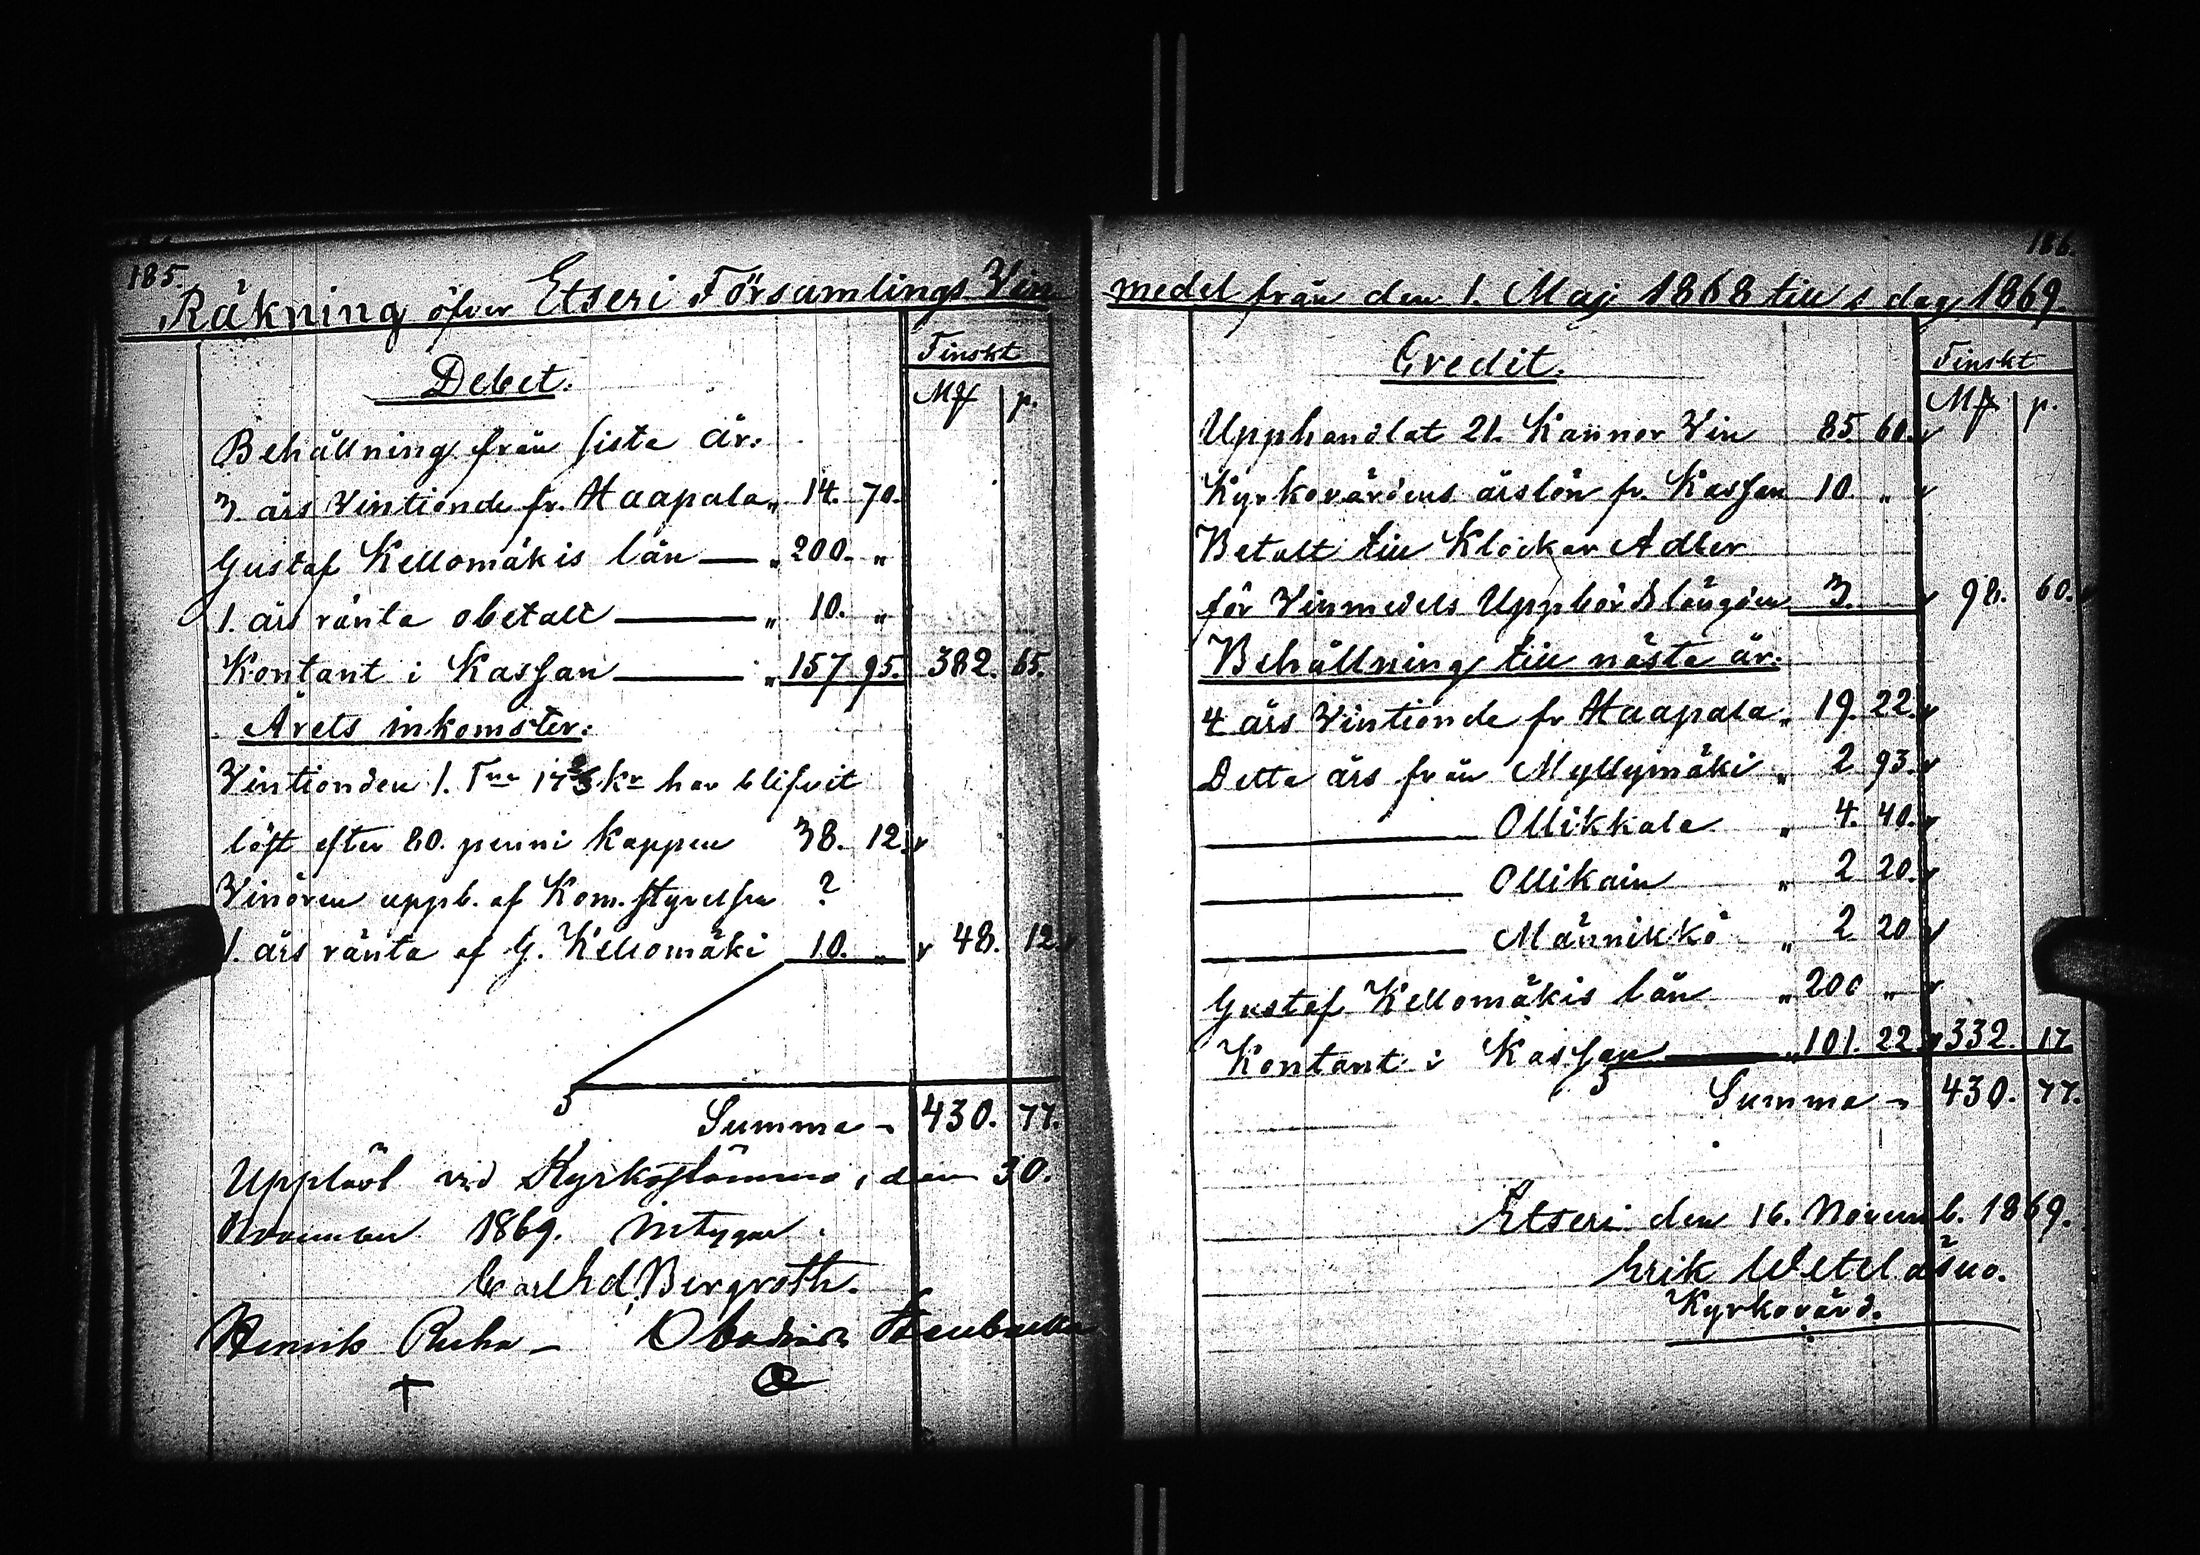 185.
Räkning öfver Etseri Församlings Vin
Finskt
Debet.
Mk p.
Behållning från sista år.
3. års Vintionde fr. Haapala „ 14. 70.
Gustaf Kellomäkis lån — „ 200. „
1. års ränta obetalt — „ 10. „
Kontant i Kassan — „ 157 95. 382. 65.
Årets inkomster:
Vintionden 1. Tna kr har blifvit
löst efter 80. penni kappen 38. 12.
Vinören uppb. af Kom. styrelsen ?
1. års ränta af G. Kellomäki 10. „ 48. 12.
Summa 430. 77.
Uppläst vid Kyrkostämma, den 30.
November 1869. intygar.
Bergroth.
Henrik Ruha
186.
medel från den 1. Maj 1868 till s dag 1869
Credit.
Finskt
Mk p.
Upphandlat 21. Kannor Vin 85 60.
Kyrkovärdens årslön fr. Kassan 10. „
Betalt till Klockar Adler
för Vinmedels Uppbördslängden 3. 98. 60.
Behållning till nästa år:
4 års Vintionde fr Haapala „ 19. 22.
Detta års från Myllymäki „ 2 93.
— Ollikkala „ 4. 40.
— Ollikain „ 2 20.
— Männikkö „ 2 20
Gustaf Kellomäkis lån „ 200 „
Kontant i Kassan — „ 101. 22 332. 17
Summa 430. 77.
Etseri den 16. Novemb. 1869.
Erik Weteläsuo.
Kyrkovärd.